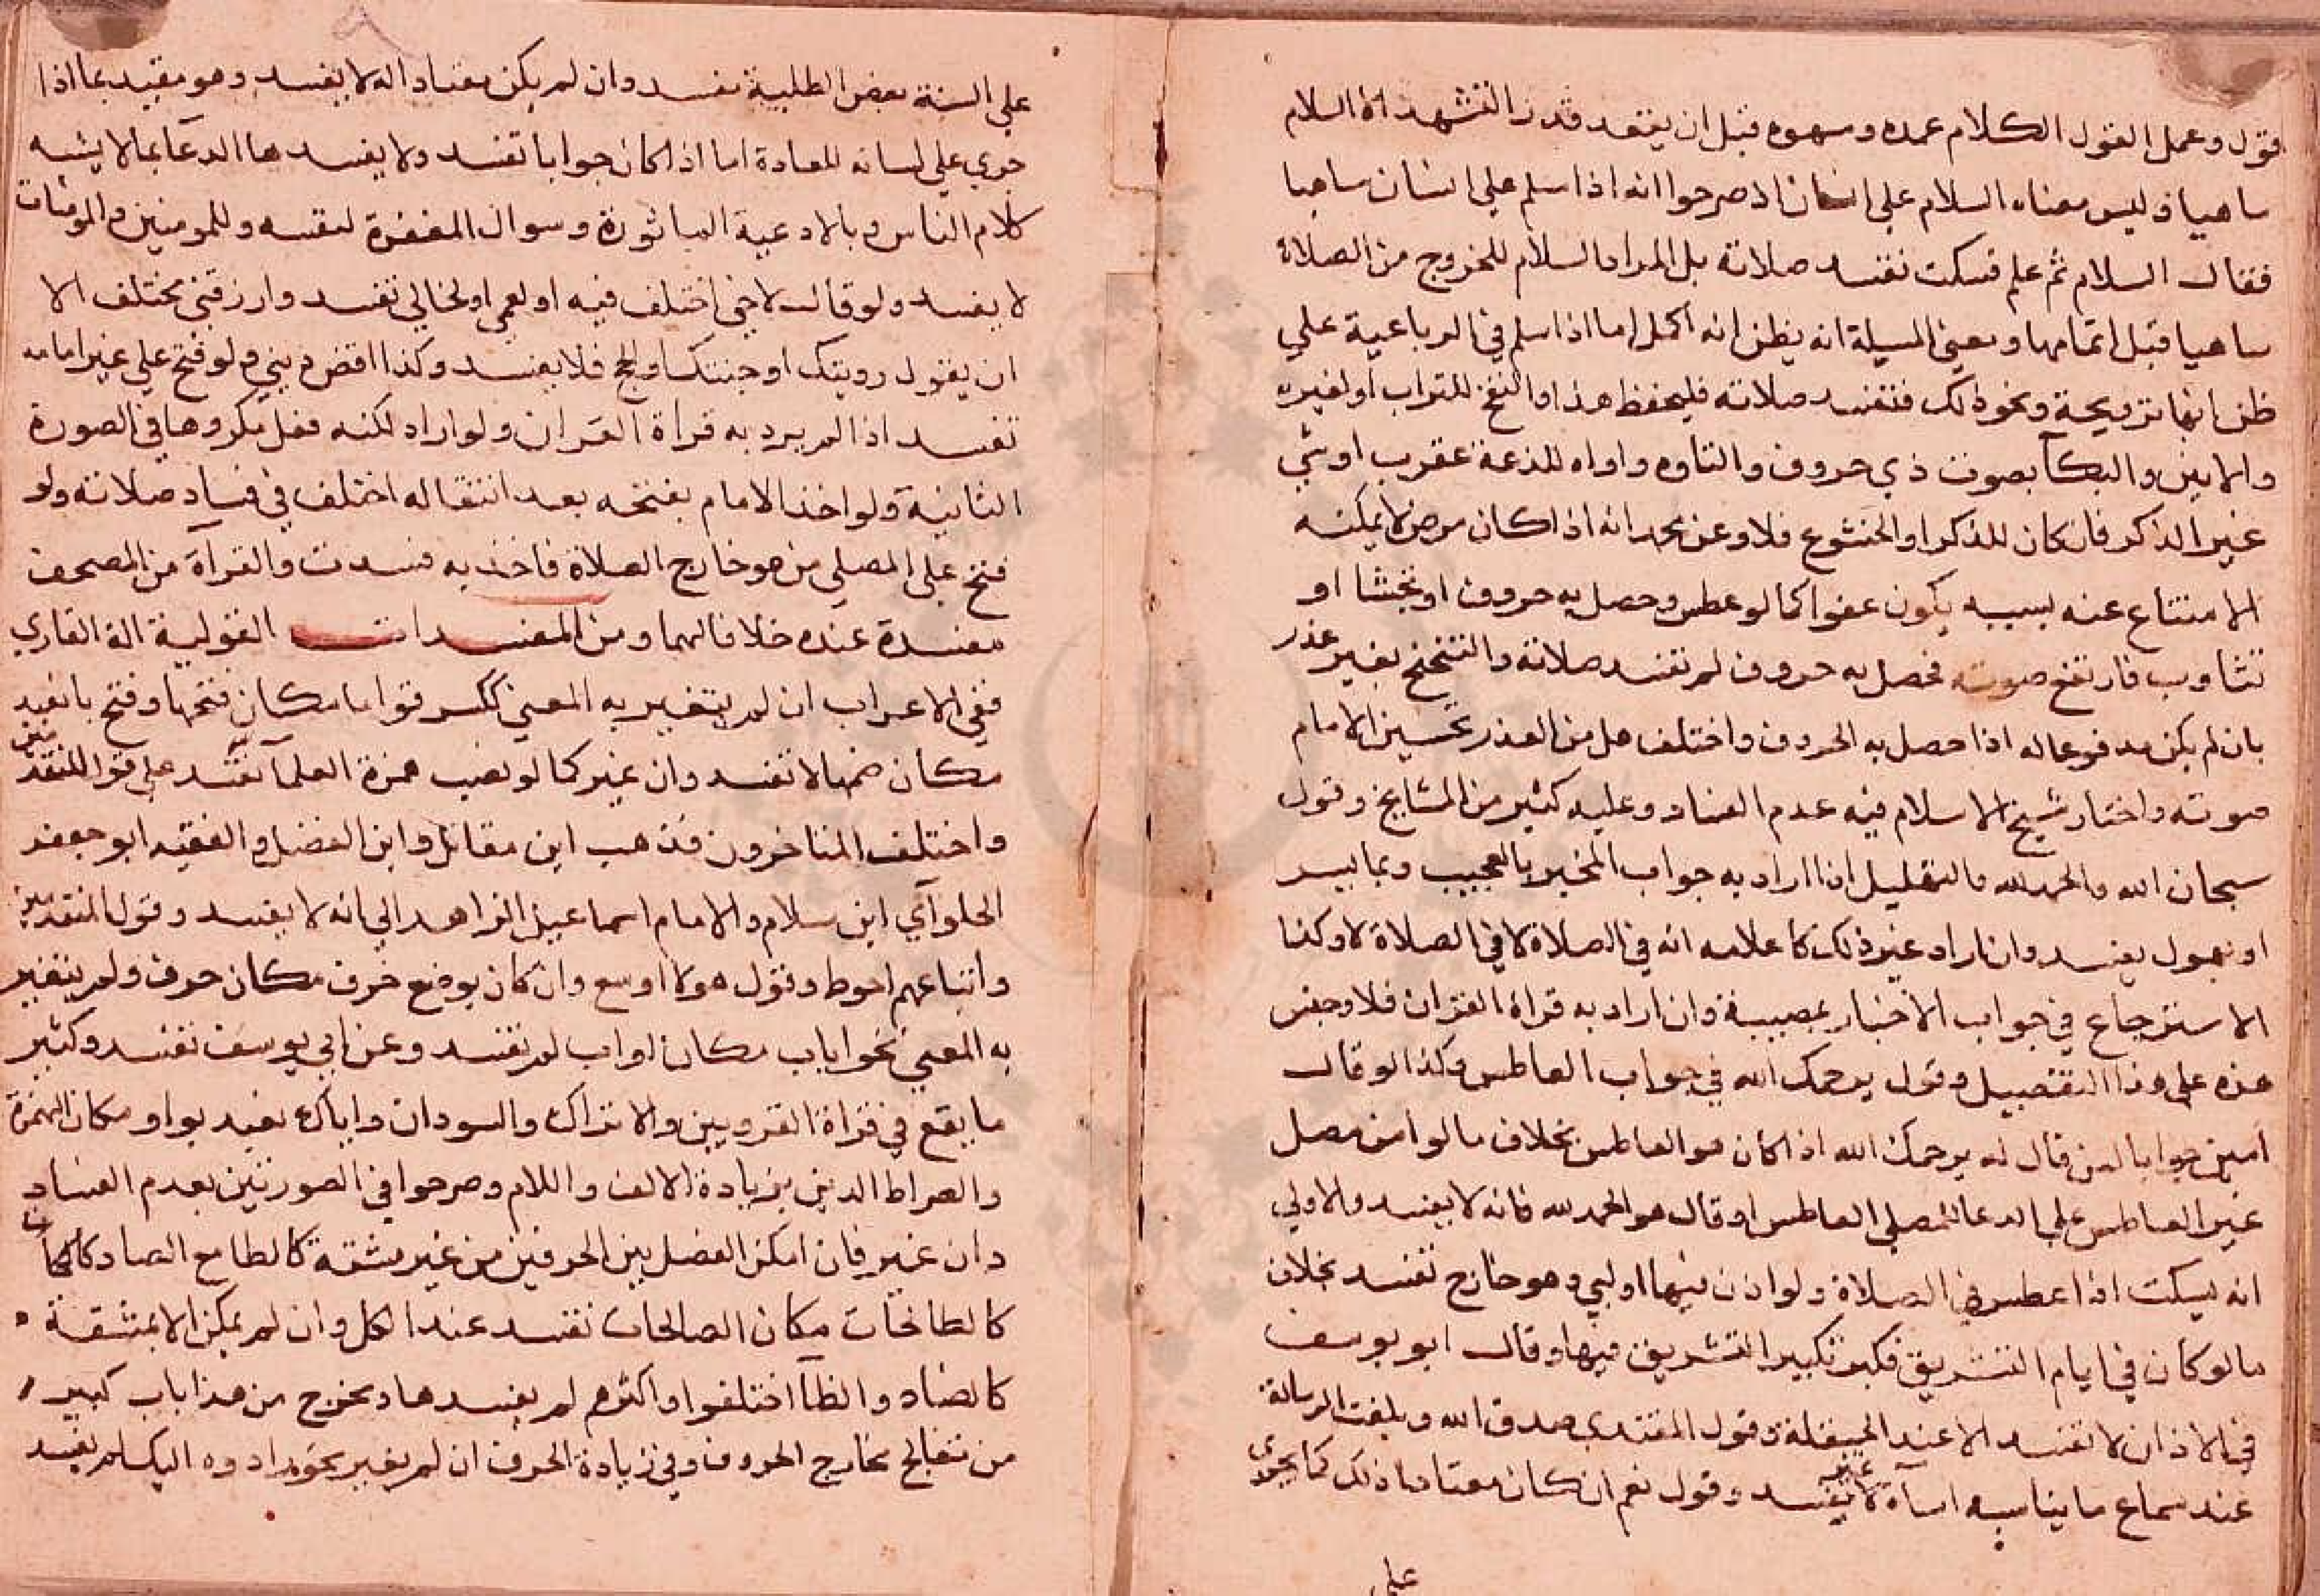 قول وعمل القول الكلام عمده وسهوه قبل ان يقعد قدر التشهد الا السلام
ساهيا وليس معناه السلام على انسان اذ صرحوا انه اذا سلم على انسان ساهيا
فقال السلام ثم علم فسكت تفسد صلاته بل المراد السلام للخروج من الصلاة
ساهيا قبل اتمامها ومعنى المسيلة انه يظن انه اكمل اما اذا سلم في الرباعية على
ظن انها ترويحة ونحو ذلك فتفسد صلاته فليحفظ هذا والنفخ للتراب او لغيره
والانين والبكآ بصوت ذي حروف والتاوه واواه للذعة عقرب او شي
غير الذكر فان كان للذكر او الخشوع فلا وعن محمد انه اذا كان مرض لا يمكنه
الامتناع عنه بسببه يكون عفوا كما لو عطس وحصل به حروف او تجشا او
تثاوب فارتفع صوته فحصل به حروف لم تفسد صلاته والتنحنح بغير عذر
بان لم يكن مدفوعا له اذا حصل به الحروف واختلف هل من العذر تحسين الامام
صوته واختار شيخ الاسلام فيه عدم الفساد وعليه كثير من المشايخ وقول
سبحان الله والحمد لله والتهليل اذا اراد به جواب المخبر بالعجيب وبما يسر
او يهول يفسد وان اراد غير ذلك كاعلامه انه في الصلاة لا وكذا
الاسترجاع في جواب الاخبار بمصيبة وان اراد به قراة القران فلا وجنس
هذه على هذا التفصيل وقول يرحمك الله في جواب العاطس وكذا لو قال
امين جوابا لمن قال له يرحمك الله اذا كان هو العاطس بخلاف ما لو امن مصل
غير العاطس على الدعا للمصلي العاطس او قال هو الحمد لله فانه لا يفسد والاولى
انه يسكت اذا عطس في الصلاة ولو اذن فيها او لبي وهو خارج تفسد بخلاف
ما لو كان في ايام التشريق فكبر تكبير التشريق فيها وقال ابو يوسف
في الاذان لا تفسد الا عند الحيعلة وقول المقتدي صدق الله وبلغت الرسالة
عند سماع ما يناسبه اسآة لا يفسد وقول نعم ان كان معتادا ذلك كما يجرى
على
على السنة بعض الطلبية تفسد وان لم يكن معتادا له لا يفسد وهو مقيد بما اذا
جري على لسانه للعادة اما اذا كان جوابا تفسد ولا يفسدها الدعآ بما لا يشبه
كلام الناس وبالادعية الماثورة وسوال المغفرة لنفسه وللمومنين والمومنات
لا يفسد ولو قال لاخي اختلف فيه او لعمي او لخالي تفسد وارزقني مختلف الا
ان يقول رويتك او جنتك او الحج فلا يفسد وكذا اقض ديني ولو فتح على غير امامه
تفسد اذا لم يرد به قراة القران ولو اراد لكنه فعل مكروها في الصورة
الثانية ولو اخذ الامام بفتحه بعد انتقاله اختلف في فساد صلاته ولو
فتح على المصلي من هو خارج الصلاة فاخذ به فسدت والقرآة من المصحف
مفسدة عنده خلافا لهما ومن المفسدات القولية زلة القاري
ففي الاعراب ان لم يتغير به المعنى ككسر قواما مكان فتحها وفتح با نعبد
مكان ضمها لا تفسد وان غير كما لو نصب همزة العلمآ تفسد على قول المتقدمين
واختلف المتاخرون فذهب ابن مقاتل وابن الفضل والفقيه ابو جعفر
الحلوآي ابن سلام والامام اسماعيل الزاهد الى انه لا يفسد وقول المتقدمين
واتباعهم احوط وقول هولا اوسع وان كان بوضع حرف مكان حرف ولم يتغير
به المعنى نحو اياب مكان اواب لم تفسد وعن ابي يوسف تفسد وكثير
ما يقع في قراة القرويين والاتراك والسودان واياك نعبد بواو مكان الهمزة
والصراط الذين بزيادة الالف واللام وصرحوا في الصورتين بعدم الفساد
وان غير فان امكن الفصل بين الحرفين من غير مشقة كالطا مع الصاد
كالطالحات مكان الصالحات تفسد عند الكل وان لم يمكن الا بمشقة
كالضاد والظآ اختلفوا واكثرهم لم يفسدها ويخرج من هذا باب كبير
من مخارج الحروف وفي زيادة الحرف ان لم يغير نحو راد وه اليك لم يفسد